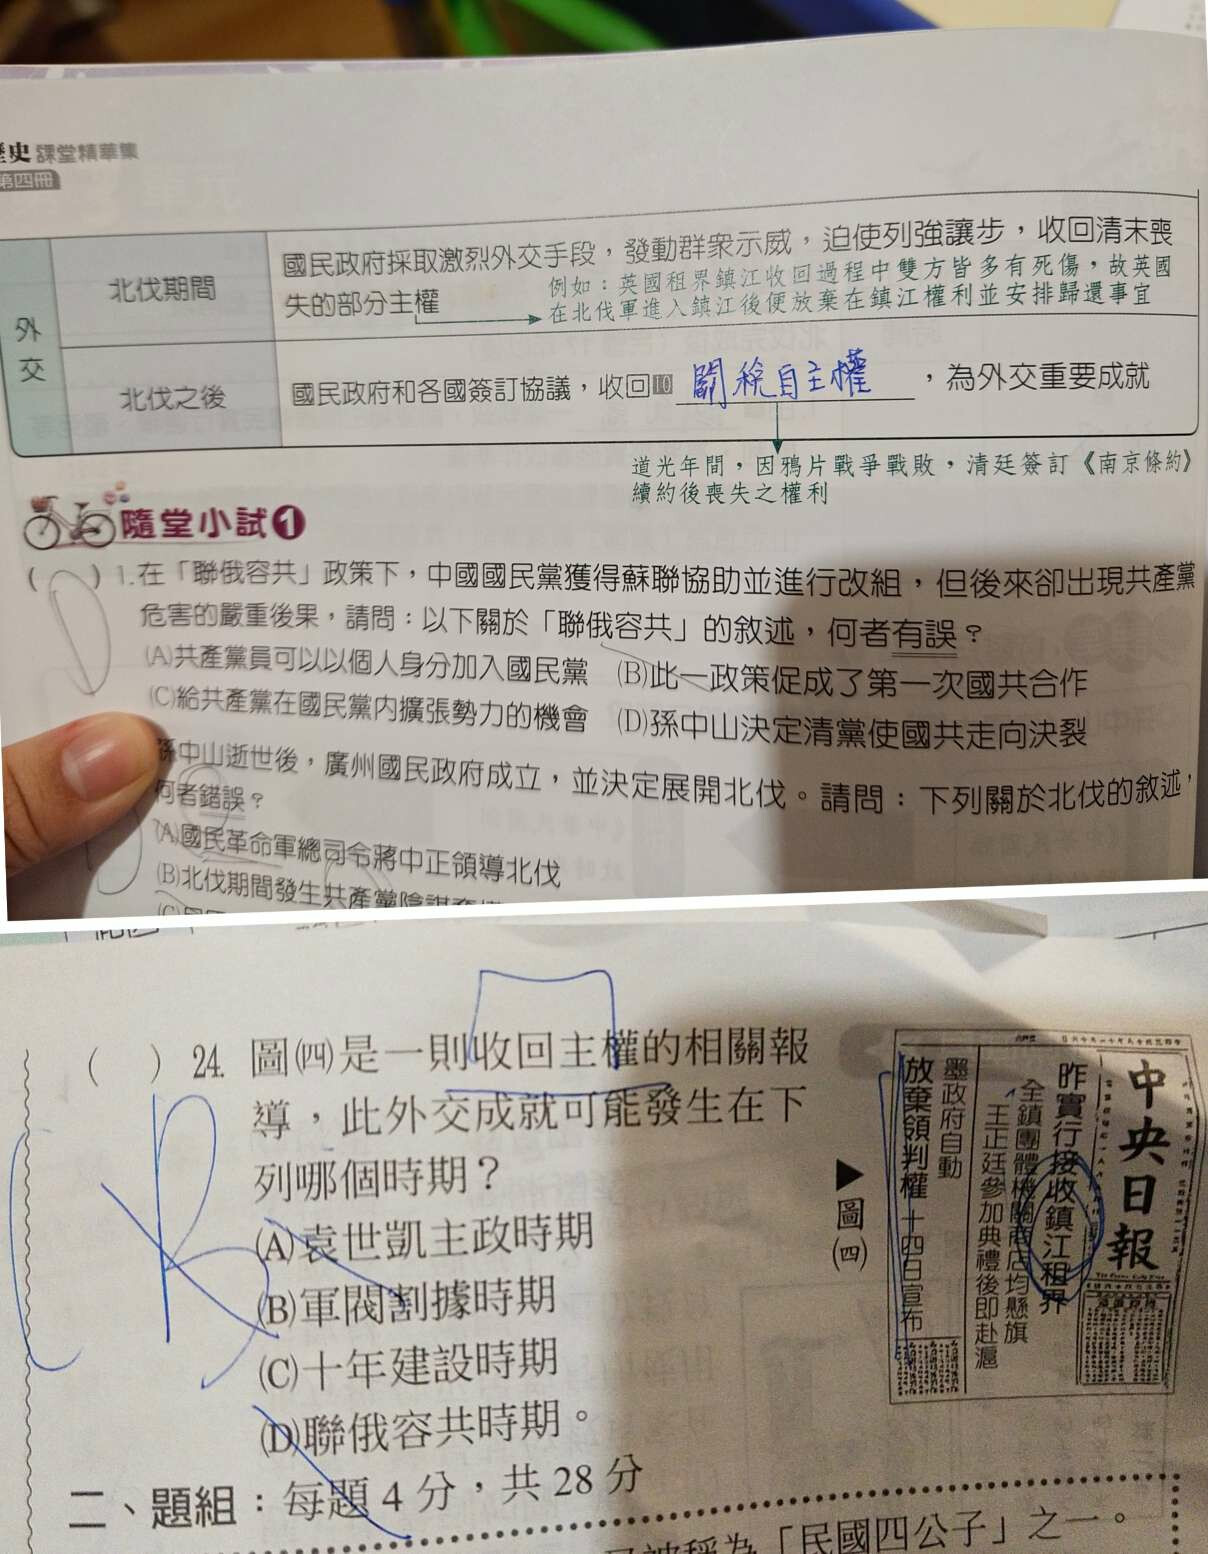 歷史 課堂精華集
第四冊
外交
北伐期間
國民政府採取激烈外交手段，發動群眾示威，迫使列強讓步，收回清末喪
失的部分主權
例如：英國租界鎮江收回過程中雙方皆多有死傷，故英國
在北伐軍進入鎮江後便放棄在鎮江權利並安排歸還事宜
北伐之後
國民政府和各國簽訂協議，收回10 關稅自主權，為外交重要成就
道光年間，因鴉片戰爭戰敗，清廷簽訂《南京條約》
續約後喪失之權利
隨堂小試1
(D) 1.在「聯俄容共」政策下，中國國民黨獲得蘇聯協助並進行改組，但後來卻出現共產黨
危害的嚴重後果，請問：以下關於「聯俄容共」的敘述，何者有誤？
(A)共產黨員可以以個人身分加入國民黨 (B)此一政策促成了第一次國共合作
(C)給共產黨在國民黨內擴張勢力的機會 (D)孫中山決定清黨使國共走向決裂
孫中山逝世後，廣州國民政府成立，並決定展開北伐。請問：下列關於北伐的敘述，
何者錯誤？
(A)國民革命軍總司令蔣中正領導北伐
(B)北伐期間發生共產黨陰謀
( ) 24. 圖(四)是一則收回主權的相關報
導，此外交成就可能發生在下
列哪個時期？
(A)袁世凱主政時期
(B)軍閥割據時期
(C)十年建設時期
(D)聯俄容共時期。
▶圖(四)
中央日報
昨實行接收鎮江租界
全鎮團體機關商店均懸旗
王正廷參加典禮後即赴滬
墨政府自動
放棄領判權 十四日宣布
二、題組：每題 4 分，共 28 分
被稱為「民國四公子」之一。